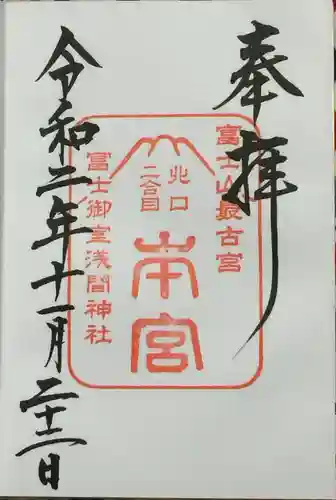 奉拝
富士山最古宮
北口
二合目
本宮
富士御室浅間神社
令和二年十一月二十二日